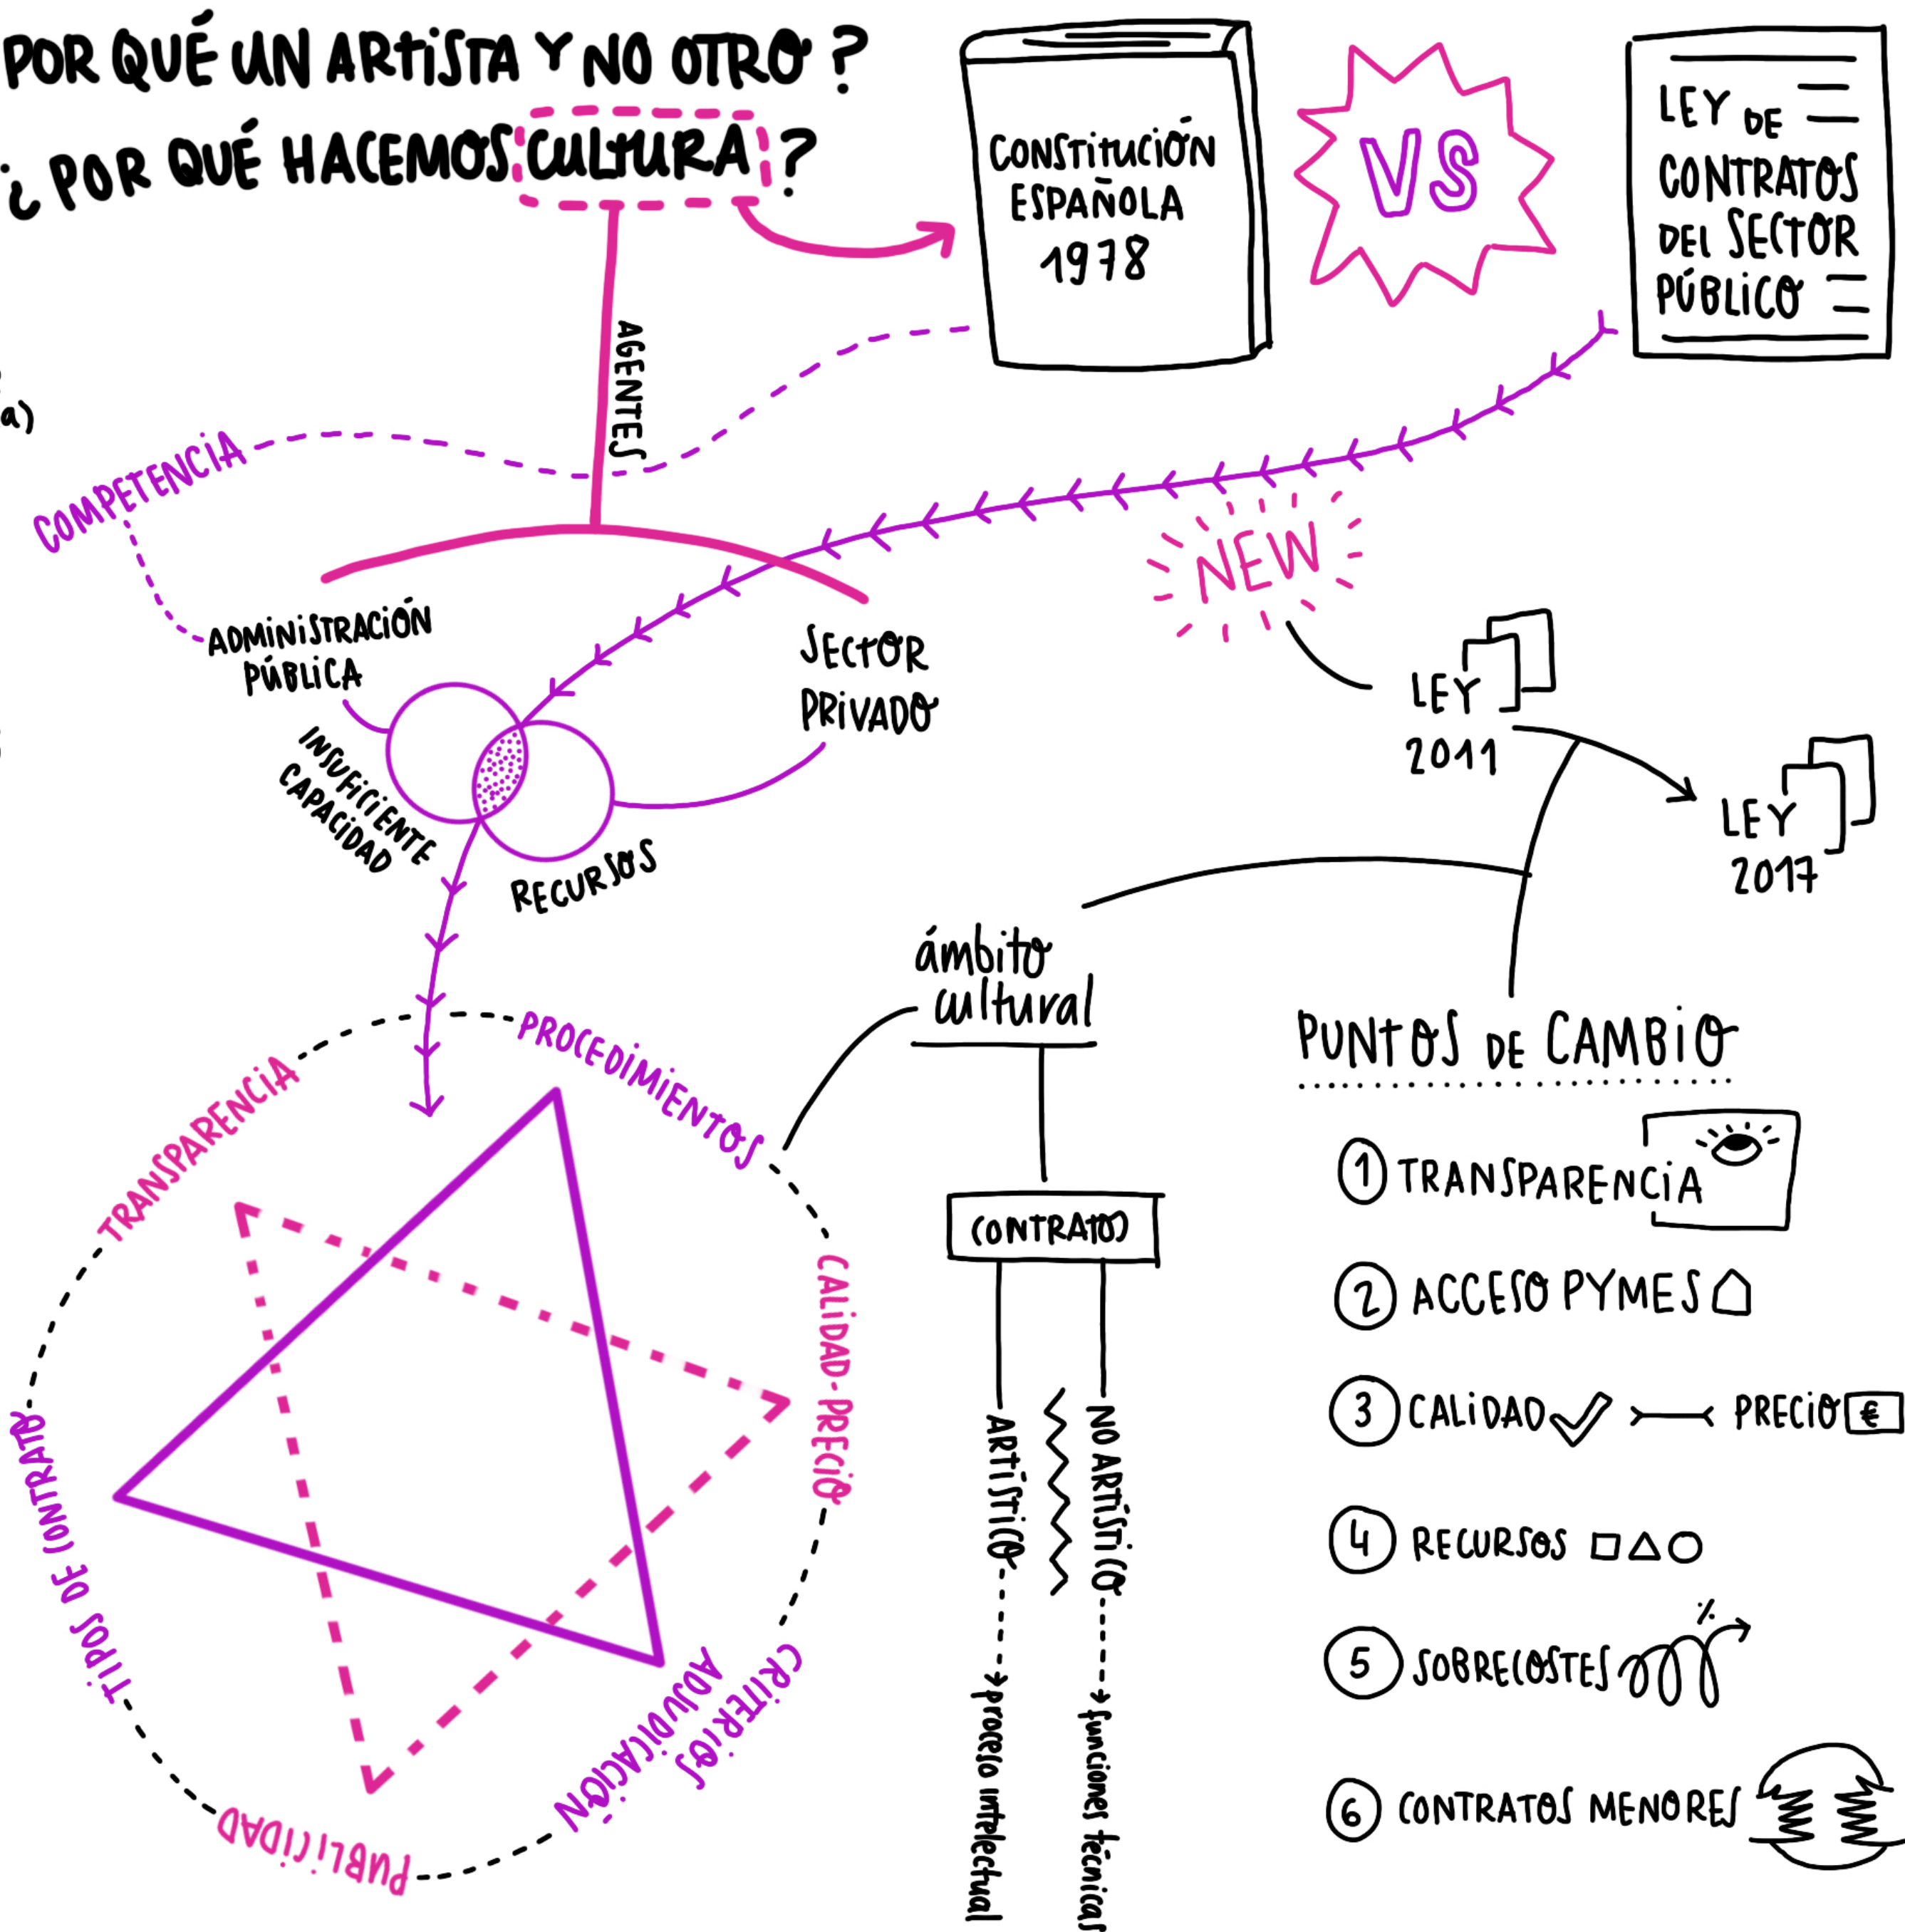 POR QUÉ UN ARTISTA Y NO OTRO?
¿POR QUÉ HACEMOS CULTURA?
CONSTITUCIÓN
ESPAÑOLA
1978
VS
LEY DE
CONTRATOS
DEL SECTOR
PÚBLICO
a)
AGENTES
COMPETENCIA
ADMINISTRACIÓN
PÚBLICA
SECTOR
PRIVADO
INSUFICIENTE
CAPACIDAD
RECURSOS
NEW
LEY
2011
LEY
2017
ámbito
cultural
CONTRATOS
ARTÍSTICO
NO ARTÍSTICO
proceso intelectual
funciones técnicas
PROCEDIMIENTOS
TRANSPARENCIA
CALIDAD-PRECIO
TIPOS DE CONTRATO
CRITERIOS
ADJUDICACIÓN
PUBLICIDAD
PUNTOS DE CAMBIO
1 TRANSPARENCIA
2 ACCESO PYMES
3 CALIDAD PRECIO €
4 RECURSOS
5 SOBRECOSTES %
6 CONTRATOS MENORES